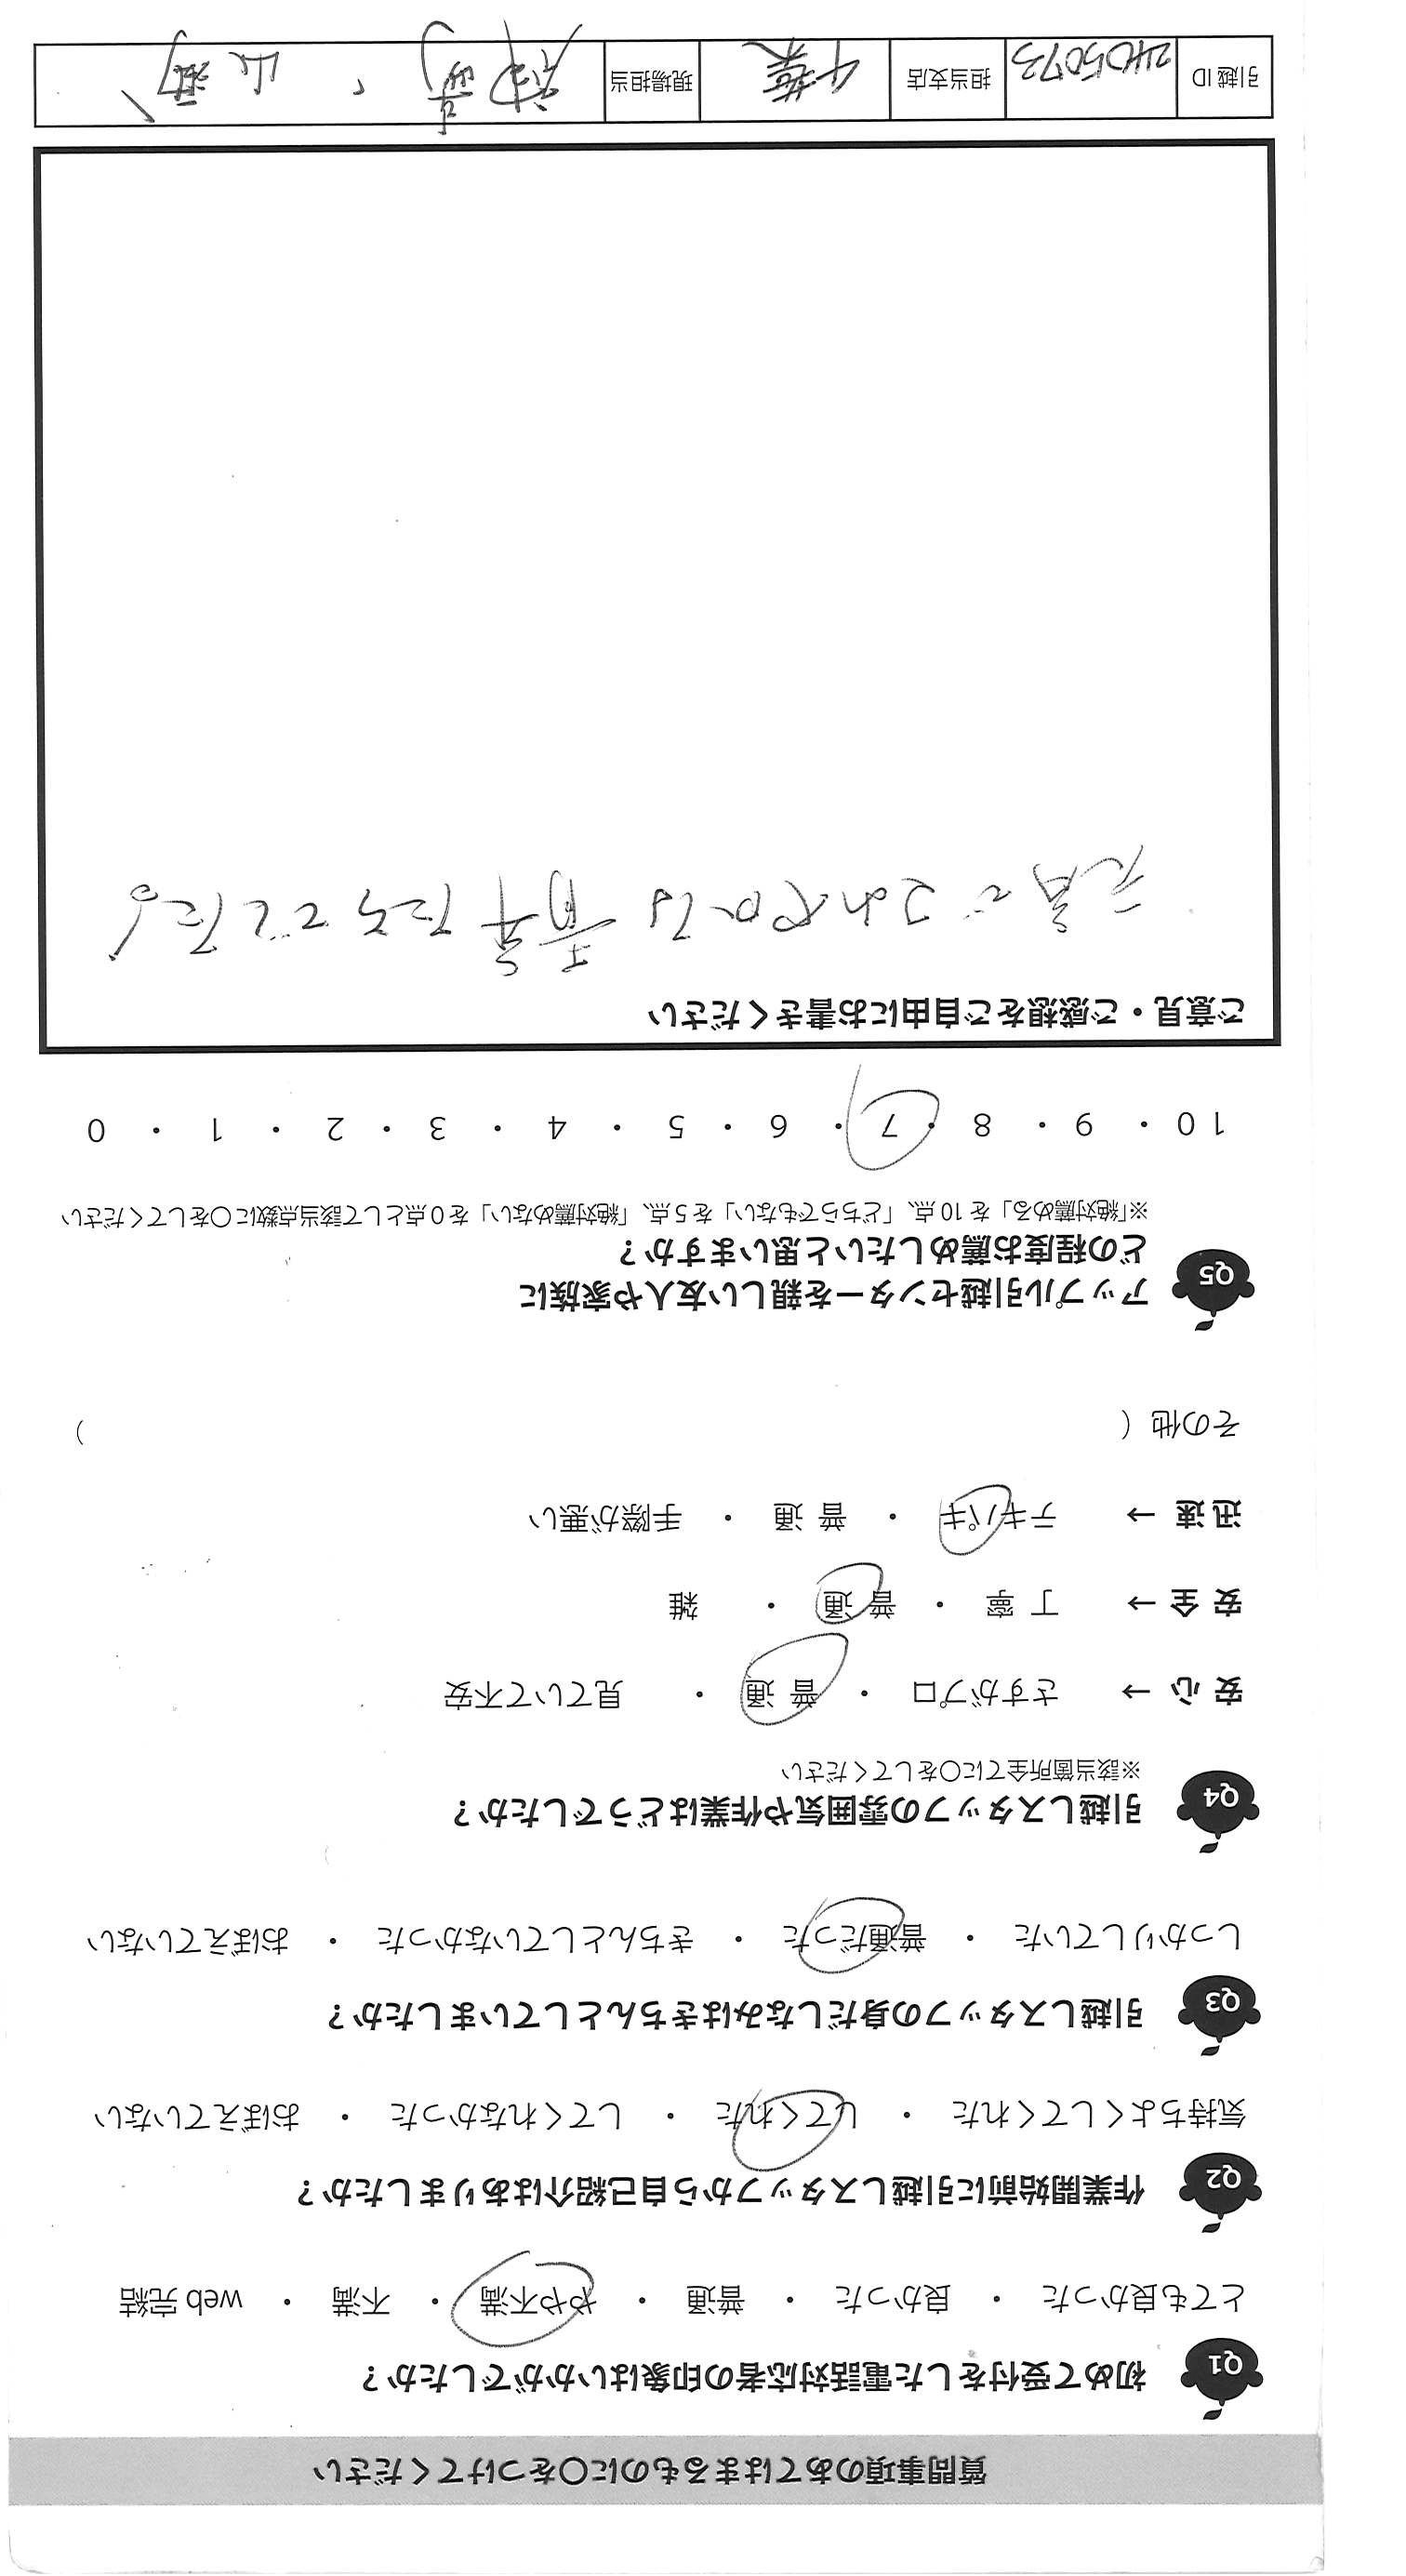 質問事項のあてはまるものに○をつけてください
Q1 初めて受付をした電話対応者の印象はいかがでしたか？
とても良かった ・ 良かった ・ 普通 ・ やや不満 ・ 不満 ・ web 完結
Q2 作業開始前に引越しスタッフから自己紹介はありましたか？
気持ちよくしてくれた ・ してくれた ・ してくれなかった ・ おぼえていない
Q3 引越しスタッフの身だしなみはきちんとしていましたか？
しっかりしていた ・ 普通だった ・ きちんとしていなかった ・ おぼえていない
Q4 引越しスタッフの雰囲気や作業はどうでしたか？
※該当箇所全てに○をしてください
安 心 → さすがプロ ・ 普 通 ・ 見ていて不安
安 全 → 丁 寧 ・ 普 通 ・ 雑
迅 速 → テキパキ ・ 普 通 ・ 手際が悪い
その他（ ）
Q5 アップル引越センターを親しい友人や家族に
どの程度お薦めしたいと思いますか？
※「絶対薦める」を 10 点、「どちらでもない」を 5 点、「絶対薦めない」を 0 点として該当点数に○をしてください
10 ・ 9 ・ 8 ・ 7 ・ 6 ・ 5 ・ 4 ・ 3 ・ 2 ・ 1 ・ 0
ご意見・ご感想をご自由にお書きください
元気でさわやかな青年たちでした。
引越 ID 2405073 担当支店 千葉 現場担当